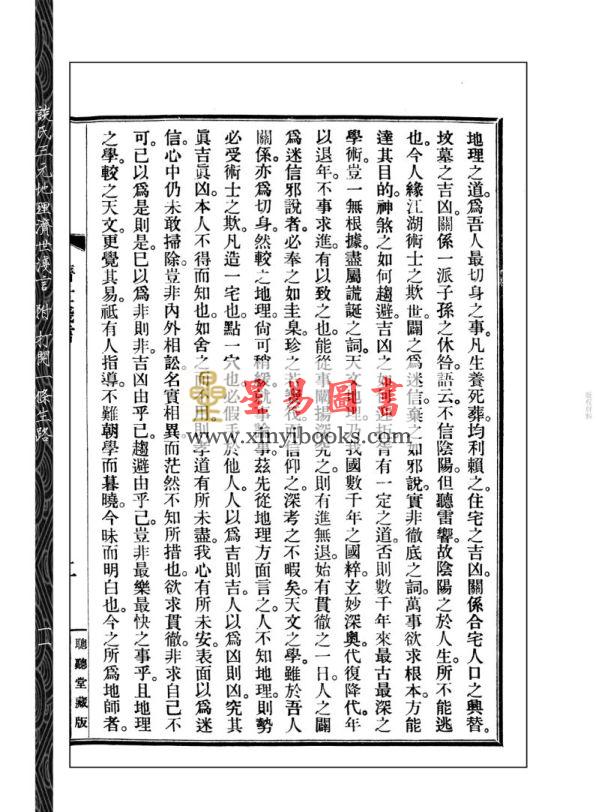 地理之道。爲吾人最切身之事。凡生養死葬。均利賴之。住宅之吉凶。關係合宅人口之興替。
坟墓之吉凶。關係一派子孫之休咎。語云。不信陰陽。但聽雷響。故陰陽之於人生。所不能逃
也。今人緣江湖術士之欺世。闢之爲迷信。棄之如邪說。實非徹底之詞。萬事欲求根本。方能
達其目的。神煞之如何趨避。吉凶之如何
皆有一定之道。否則數千年來最古最深之
學術。豈一無根據。盡屬謊誕之詞。天文地理。乃我國數千年之國粹。玄妙深奧。代復降代。年
以退年。不事求進。有以致之也。能從事闡揚。深究之則有進無退。始有貫徹之一日。人之闢
爲迷信邪說者。必奉之如圭臬。珍之若
而信仰之深。考之不暇矣。天文之學。雖於吾人
關係亦爲切身。然較之地理。尙可稍
茲先從地理方面言之。人不知地理。則勢
必受術士之欺。凡造一宅也。點一穴也。必假手於他人。人以爲吉則吉。人以爲凶則凶。究其
眞吉眞凶。本人不得而知也。如舍之而不用。則孝道有所未盡。我心有所未安。表面以爲迷
信。心中仍未敢掃除。豈非內外相訟。名實相異。而茫然不知所措也。欲求貫徹。非求自己不
可。已以爲是則是。已以爲非則非。吉凶由乎己。趨避由乎己。豈非最樂最快之事乎。且地理
之學。較之天文。更覺其易。祇有人指導。不難朝學而暮曉。今昧而明白也。今之所爲地師者。
聽聽堂藏版
談氏三元地理濟世淺言 附 打開一條生路
一一
星易图書
www.xinyibooks.com